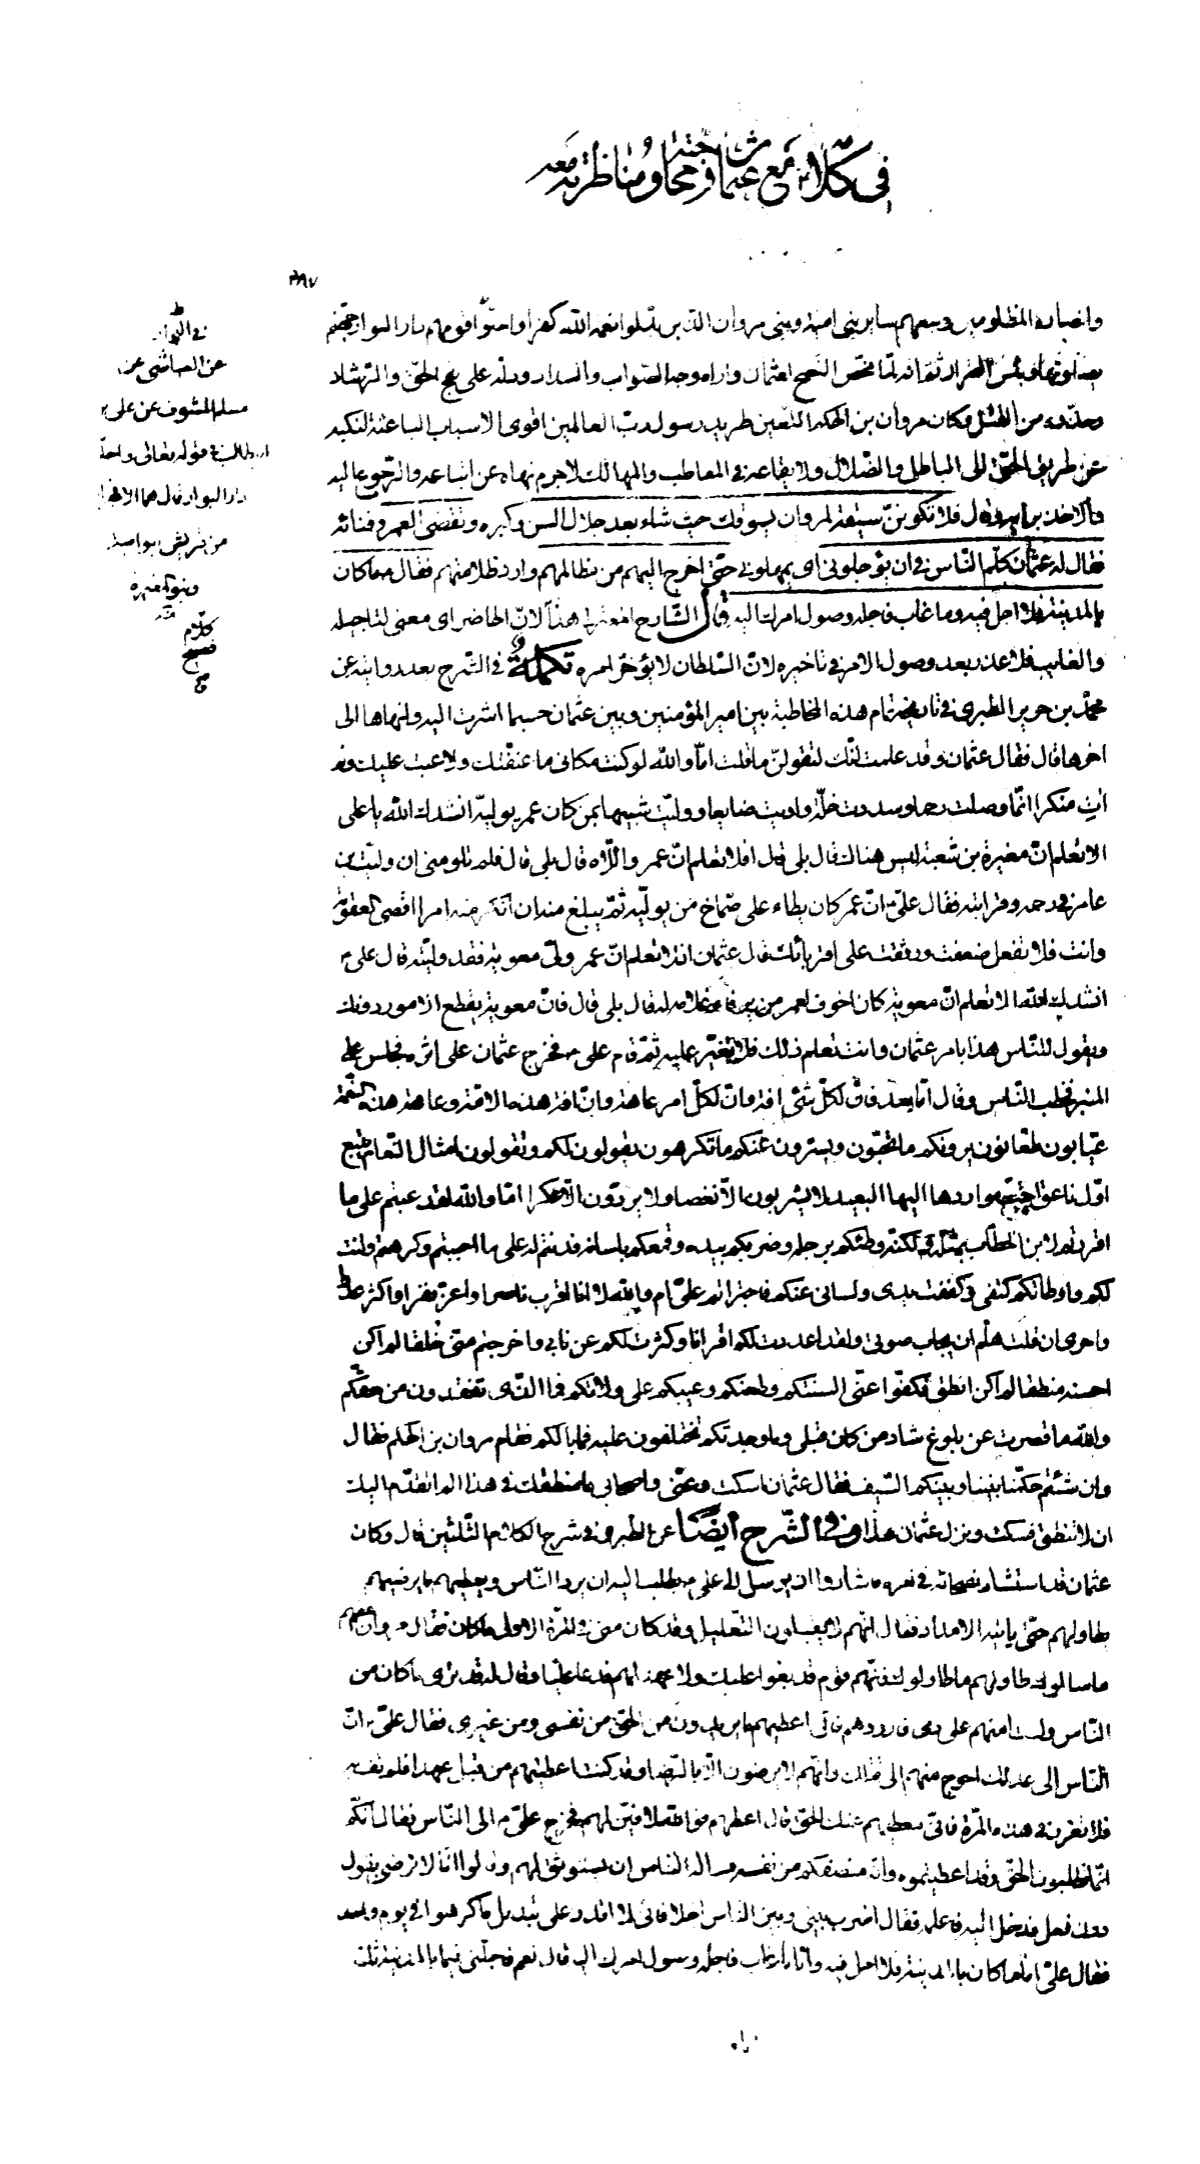 في كلامه مع عثمان ومحاجته ومناظرته معه
٣٨٧
وانصاره المظلومين وتبعهم ساير بني امية وبني مروان الذين بدّلوا نعمة الله كفرا واحلّوا قومهم دار البوار جهنّم
يصلونها وبئس القرار ثمّ انه لمّا محّض النصح لعثمان واراه وجه الصّواب والسداد ودلّه على نهج الحقّ والرّشاد
وحذّره من القتل وكان مروان بن الحكم اللّعين طريد رسول ربّ العالمين اقوى الاسباب الباعثة لتنكبه
عن طريق الحقّ الى الباطل والضّلال ولايقاعه في المعاطب والمهالك لا جرم نهاه عن اتباعه والرّجوع اليه
والاخذ برأيه وقال فلا تكوننّ سيّقة لمروان يسوقك حيث شاء بعد جلال السن وكبره وتقضّي العمر وفنائه
فقال له عثمان كلّم النّاس في ان يؤجلوني اى يمهلوني حتّى اخرج اليهم من مظالمهم وارد ظلامتهم فقال ما كان
بالمدينة فلا اجل فيه وما غاب فاجله وصول امرك اليه قال الشّارح المعتزلي هذا لانّ الحاضر اى معنى لتاجيله
والغايب فلا عذر بعد وصول الامر في تاخيره لانّ السّلطان لا يؤخّر امره تكملة في الشّرح بعد روايته عن
محمّد بن جرير الطبرى في تاريخه تمام هذه المخاطبة بين امير المؤمنين وبين عثمان حسبما اشرت اليه وانهاها الى
اخرها قال فقال عثمان وقد علمت انّك لتقولنّ ما قلت اما والله لو كنت مكاني ما عنّفتك ولا عبت عليك ولم
ات منكرا انّما وصلت رحما وسددت خلّة واويت ضايعا ووليّت شبيها بمن كان عمر يوليه انشدك الله يا على
الا تعلم انّ مغيرة بن شعبة ليس هناك قال بلى قال افلا تعلم انّ عمر ولّاه قال بلى قال فلم تلومني ان وليّت ابن
عامر في رحمه وقرابته فقال عليّ انّ عمر كان يطاء على صماخ من يوليه ثمّ يبلغ منه ان انكر منه امرا اقصى العقوبة
وانت فلا تفعل ضعفت ورققت على اقربائك قال عثمان افلا تعلم انّ عمر ولّى معوية فقد وليّته قال على
انشدك الله الا تعلم انّ معوية كان اخوف لعمر من يرفاء غلامه له قال بلى قال فانّ معوية يقطع الامور دونك
ويقول للنّاس هذا بامر عثمان وانت تعلم ذلك فلا تغيّر عليه ثمّ قام على فخرج عثمان على اثره فجلس على
المنبر فخطب النّاس وقال امّا بعد فانّ لكلّ شئ افة وانّ لكلّ امر عاهة وانّ افة هذه الامّة وعاهة هذه النّعمة
عيّابون طعّانون يرونكم ما تحبّون ويسترون عنكم ما تكرهون يقولون لكم وتقولون امثال النّعام يتبع
اوّل ناعق احبّ مواردها اليها البعيد لا يشربون الّا نغصا ولا يردّون الّا عكرا اما والله لقد عبتم على ما
اقررتم لابن الخطّاب بمثله ولكنّه وطئكم برجله وضربكم بيده وقمعكم بلسانه فدنتم له على ما احببتم وكرهتم ولنت
لكم واوطاتكم كتفي وكففت يدى ولساني عنكم فاجتراتم عليّ ام والله لانا اقرب ناصرا واعزّ نفرا واكثر عددا
واحرى ان قلت هلمّ ان يجاب صوتي ولقد اعددت لكم اقرانا وكثرت لكم عن نابي واخرجتم منّي خلقا لم اكن
احسنه ومنطقا لم اكن انطق فكفّوا عنّى السنتكم وطعنكم وعيبكم على ولاتكم فما الذى تفقدون من حقّكم
والله ما قصرت عن بلوغ شاء من كان قبلى وما وجدتكم تختلفون عليه فما بالكم فقام مروان بن الحكم فقال
وان شئتم حكّمنا بيننا وبينكم السّيف فقال عثمان اسكت دعني واصحابي ما منطقك في هذا الم اتقدّم اليك
ان لا تنطق فسكت ونزل عثمان هذا وفي الشّرح ايضًا عن الطبرى في شرح الكلام الثّلثين قال وكان
عثمان قد استشار نصحائه في امره فاشاروا ان يرسل الى على يطلب اليه ان يرد النّاس ويعطيهم ما يرضيهم
ليطاولهم حتّى ياتيه الامداد فقال انّهم لا يقبلون التّعليل وقد كان منّى في المرّة الاولى ما كان فقال مروان اعطهم
ما سالوك وطاولهم ما طاولوك فانّهم قوم قد بغوا عليك ولا عهد لهم فدعا عليّا وقال له قد ترى ما كان من
النّاس ولست امنهم على دمى فارددهم فانّى اعطيهم ما يريدون من الحقّ من نفسي ومن غيرى فقال عليّ انّ
النّاس الى عدلك احوج منهم الى قتلك وانّهم لا يرضون الّا بالرّضا وقد كنت اعطيتهم من قبل عهدا فلم تف به
فلا تغررني هذه المرّة فانّي معطيهم عنك الحقّ قال اعطهم فوالله لافينّ لهم فخرج عليّ الى النّاس فقال انّكم
انّما تطلبون الحقّ وقد اعطيتموه وانّه منصفكم من نفسه فساله الناس ان يستوثق لهم وقالوا انّا لا نرضى بقول
دون فعل فدخل اليه فاعلمه فقال اضرب بيني وبين الناس اجلا فانّى لا اقدر على تبديل ما كرهوا في يوم واحد
فقال عليّ امّا ما كان بالمدينة فلا اجل فيه وامّا ما غاب فاجله وصول امرك اليه قال نعم فاجّلني فيما بالمدينة ثلثة
ايام
عن العياشى عن
مسلم المشوف عن على بن
ابى طالب في قوله تعالى واحلّوا
دار البوار قال هما الافجران
من قريش بنو امية
وبنو المغيرة